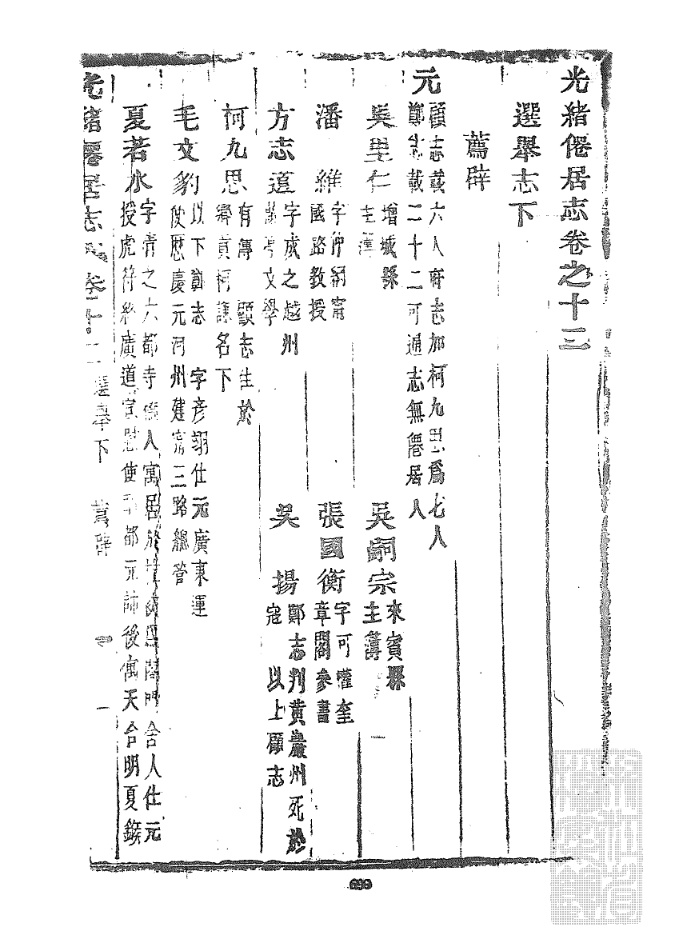 光緒僊居志卷之十三
選舉志下
薦辟
元 顧志載六人府志加柯九思爲七人
鄭志載二十二可通志無僊居人
吳里仁 增城縣主簿
吳嗣宗 來賓縣主簿
潘維 字仲 國路教授
張國衡 字可權奎章閣參書
方志道 字成之越州 亭文學
吳揚 鄭志判黃巖州死於寇 以上顧志
柯九思 有傳 顧志注於鄉貢柯謙名下
毛文豹 以下鄭志 字彥翊仕元廣東運使歷慶元河州建寧三路總管
夏若水 字清之六都寺 人寓居於 閤門舍人仕元授虎符 廣道宣慰使 都元帥後寓天台明夏鍭
光緒僊居志 卷十三 選舉下 薦辟 一
699